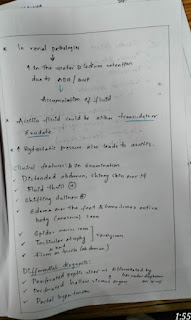 * In renal pathologies
↓
↑ In the water & sodium retention
due to ADH / ANP
↓
Accumulation of fluid
* Ascitic fluid could be either transudate or
Exudate.
* Hydrostatic pressure also leads to ascites.
Clinical features & on examination
✓ Distended abdomen, shiny skin over it
✓ Fluid thrill
✓ Shifting dullness
✓ Edema over the feet & sometimes entire
body (anasarca) seen
✓ Spider nevus seen
✓ Testicular atrophy
✓ (abdomen)
Differential diagnosis:
✓ Perforated peptic ulcer differentiated by
✓ Perforated hollow viscus organ
✓ Portal hypertension
1:55